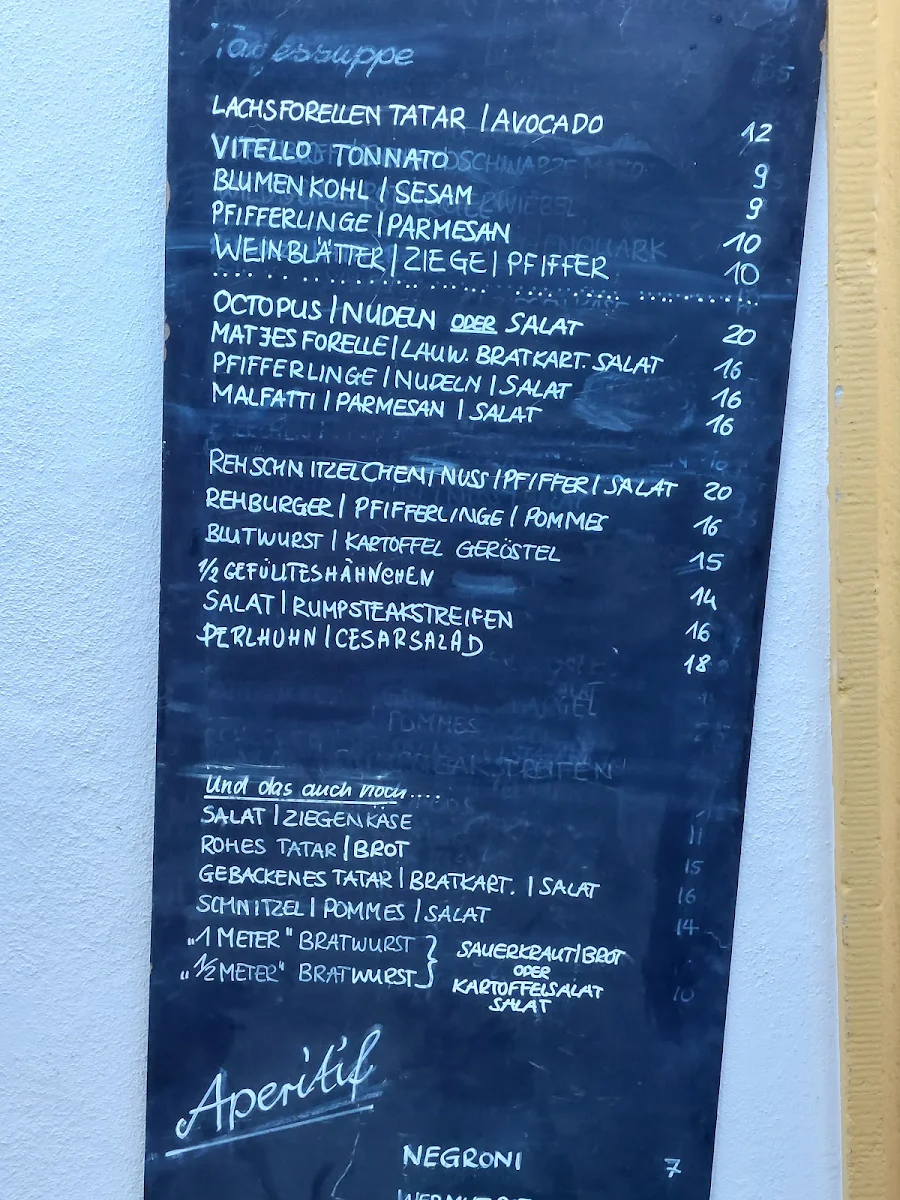 Tagessuppe
LACHSFORELLEN TATAR | AVOCADO 12
VITELLO TONNATO 9
BLUMENKOHL | SESAM 9
PFIFFERLINGE | PARMESAN 10
WEINBLÄTTER | ZIEGE | PFIFFER 10
OCTOPUS | NUDELN ODER SALAT 20
MATJES FORELLE | LAUW. BRATKART. SALAT 16
PFIFFERLINGE | NUDELN | SALAT 16
MALFATTI | PARMESAN | SALAT 16
REHSCHNITZELCHEN | NUSS | PFIFFER | SALAT 20
REHBURGER | PFIFFERLINGE | POMMES 16
BLUTWURST | KARTOFFEL GERÖSTEL 15
1/2 GEFÜLLTESHÄHNCHEN 14
SALAT | RUMPSTEAKSTREIFEN 16
PERLHUHN | CESARSALAD 18
POMMES
Und das auch noch....
SALAT | ZIEGENKÄSE 11
ROHES TATAR | BROT 15
GEBACKENES TATAR | BRATKART. | SALAT 16
SCHNITZEL | POMMES | SALAT 14
„1 METER" BRATWURST } SAUERKRAUT | BROT
ODER
„1/2 METER" BRATWURST } KARTOFFELSALAT 10
SALAT
Aperitif
NEGRONI 7